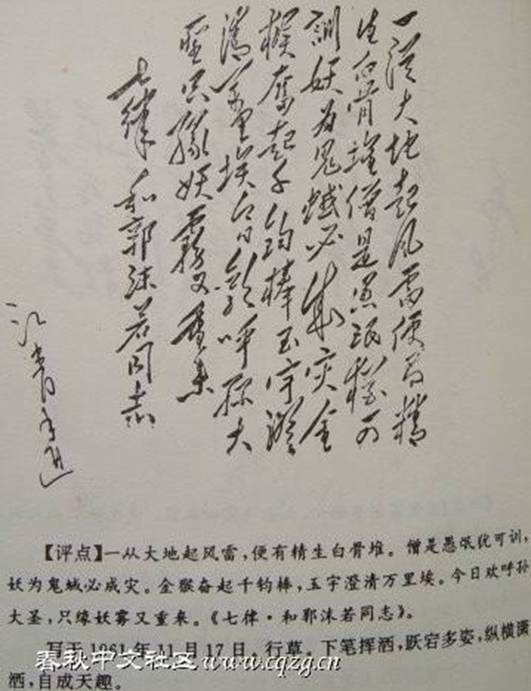 一从大地起风雷便有精
生白骨堆僧是愚氓犹可
訓妖为鬼蜮必成灾金
猴奋起千钧棒玉宇澄
清万里埃今日欢呼孙大
聖只缘妖霧又重来
七律 和郭沫若同志
江青手迹
【评点】一从大地起风雷，便有精生白骨堆。僧是愚氓犹可训，
妖为鬼蜮必成灾。金猴奋起千钧棒，玉宇澄清万里埃。今日欢呼孙
大圣，只缘妖雾又重来。《七律·和郭沫若同志》。
写于1961年11月17日。行草。下笔挥洒，跃宕多姿，纵横潇
洒，自成天趣。
春秋中文社区www.cqzg.cn